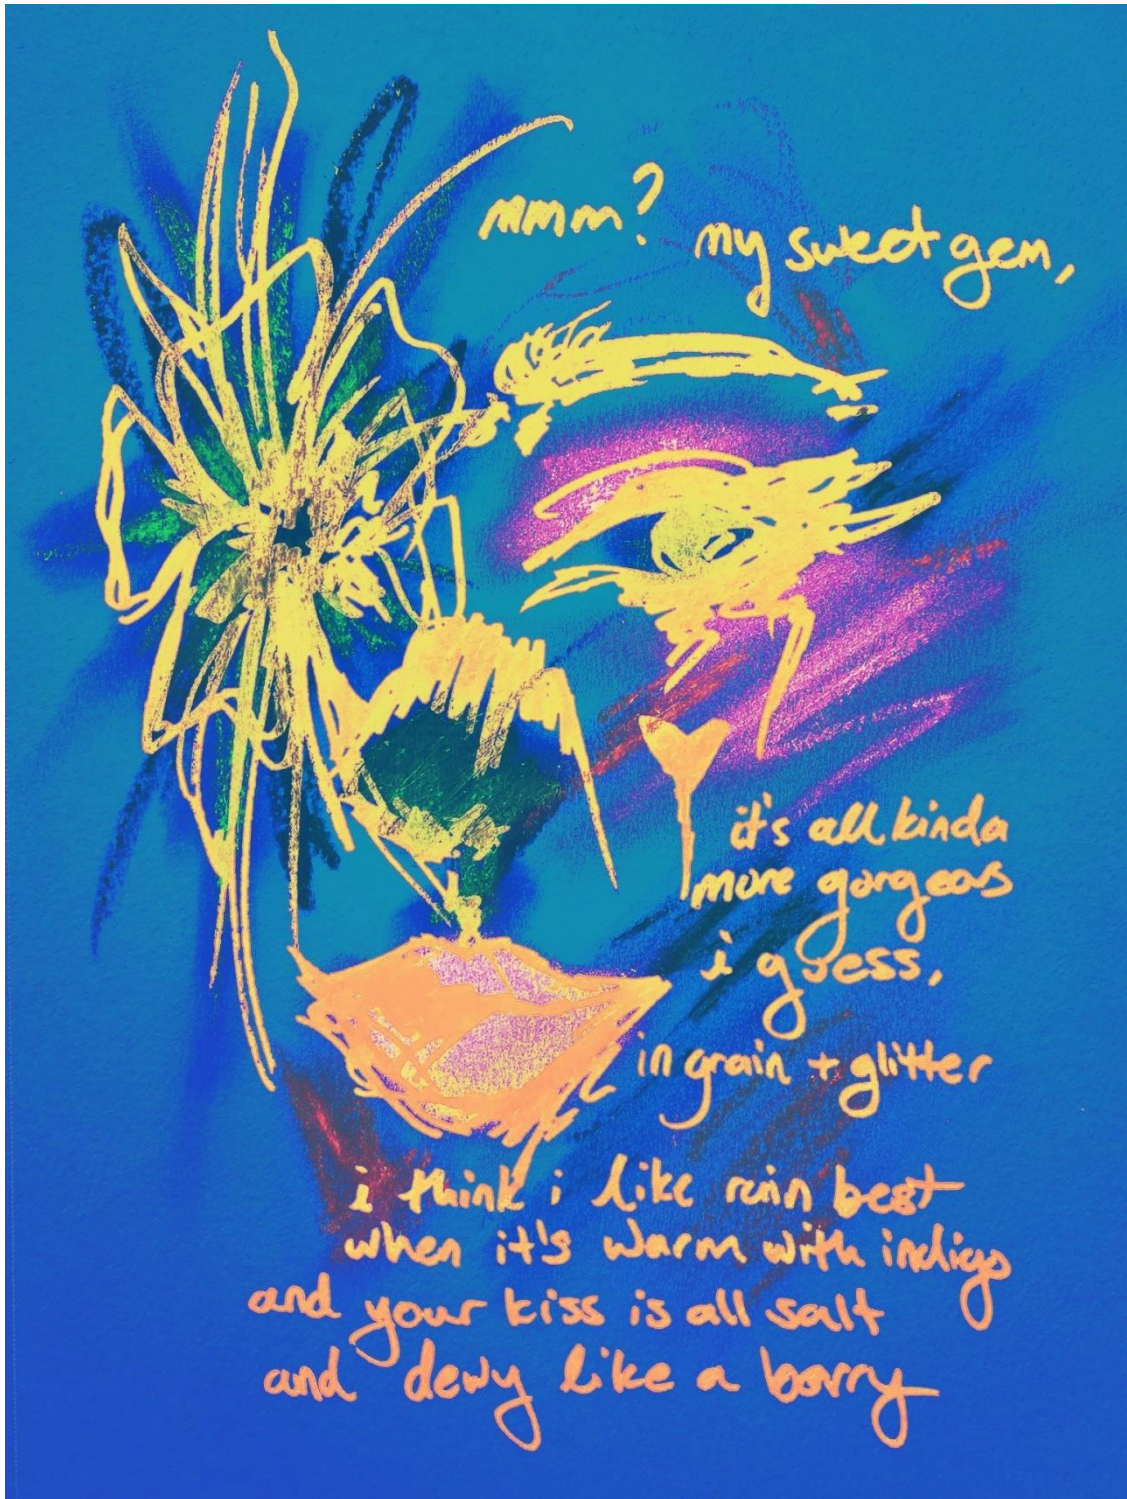 mmm? my sweet gem,
it's all kinda
more gorgeous
i guess,
in grain + glitter
i think i like rain best
when it's warm with indigo
and your kiss is all salt
and dewy like a berry